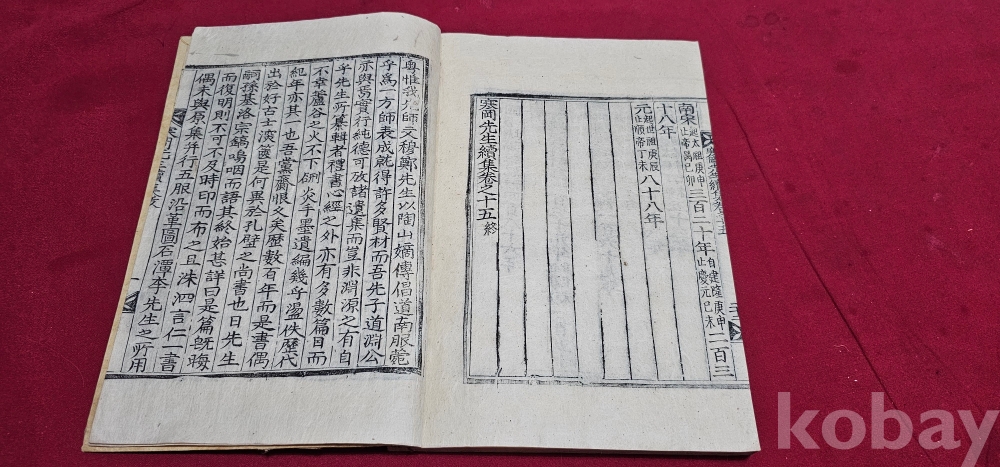 南宋起太祖庚申止帝昺己卯三百二十年自建隆庚申止慶元己未二百三
十八年
元起世祖庚辰止順帝丁未八十八年
寒岡先生續集卷之十五 終
粤惟我先師文穆鄭先生以陶山嫡傳倡道南服蔚
乎爲一方師表成就得許多賢材而吾先子道淵公
亦與焉實行純德可攷諸遺集而豈非淵源之有自
乎先生所纂輯者禮書心經之外亦有多數篇目而
不幸蘆谷之火不下劂炎手墨遺編幾乎溫佚歷代
紀年亦其一也吾黨齎恨久矣歷數百年而是書偶
出於好古士演篋是何異於孔壁之尚書也日先生
嗣孫基洛宗鎬嗚咽而語其終始甚詳曰是篇旣晦
而復明則不可不及時印而布之且洙泗言仁一書
偶未與原集幷行五服沿革圖石潭李先生之所用
kobay